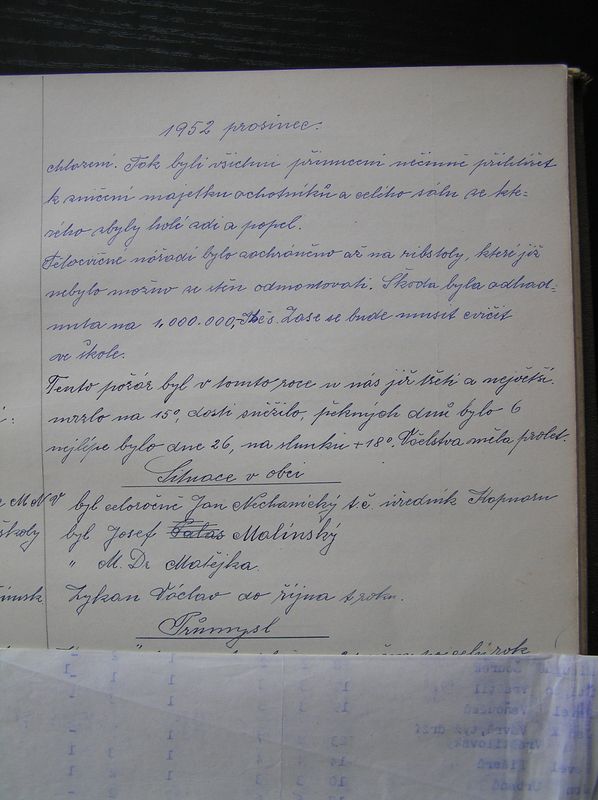 1952 prosinec.
chlazení. Tak byli všichni přinuceni nečinně přihlížet
k zničení majetku ochotníků a celého sálu ze kte-
rého zbyly holé zdi a popel.
Tělocvičné nářadí bylo zachráněno až na ribstoly, které již
nebylo možno ze stěn odmontovati. Škoda byla odhad-
nuta na 1,000.000,- Kčs. Zase se bude musit cvičit
ve škole.
Tento požár byl v tomto roce u nás již třetí a největší.
mrzlo na 15°, dosti sněžilo, pěkných dnů bylo 6
nejlépe bylo dne 26, na slunku +18°. Včelstva měla prolet.
Situace v obci
MNV byl celoročně Jan Nechanický t.č. úředník Kapnaru
školy byl Josef Malínský
" M. Dr Matějka.
Zykan Václav do října t. roku.
Průmysl
rok